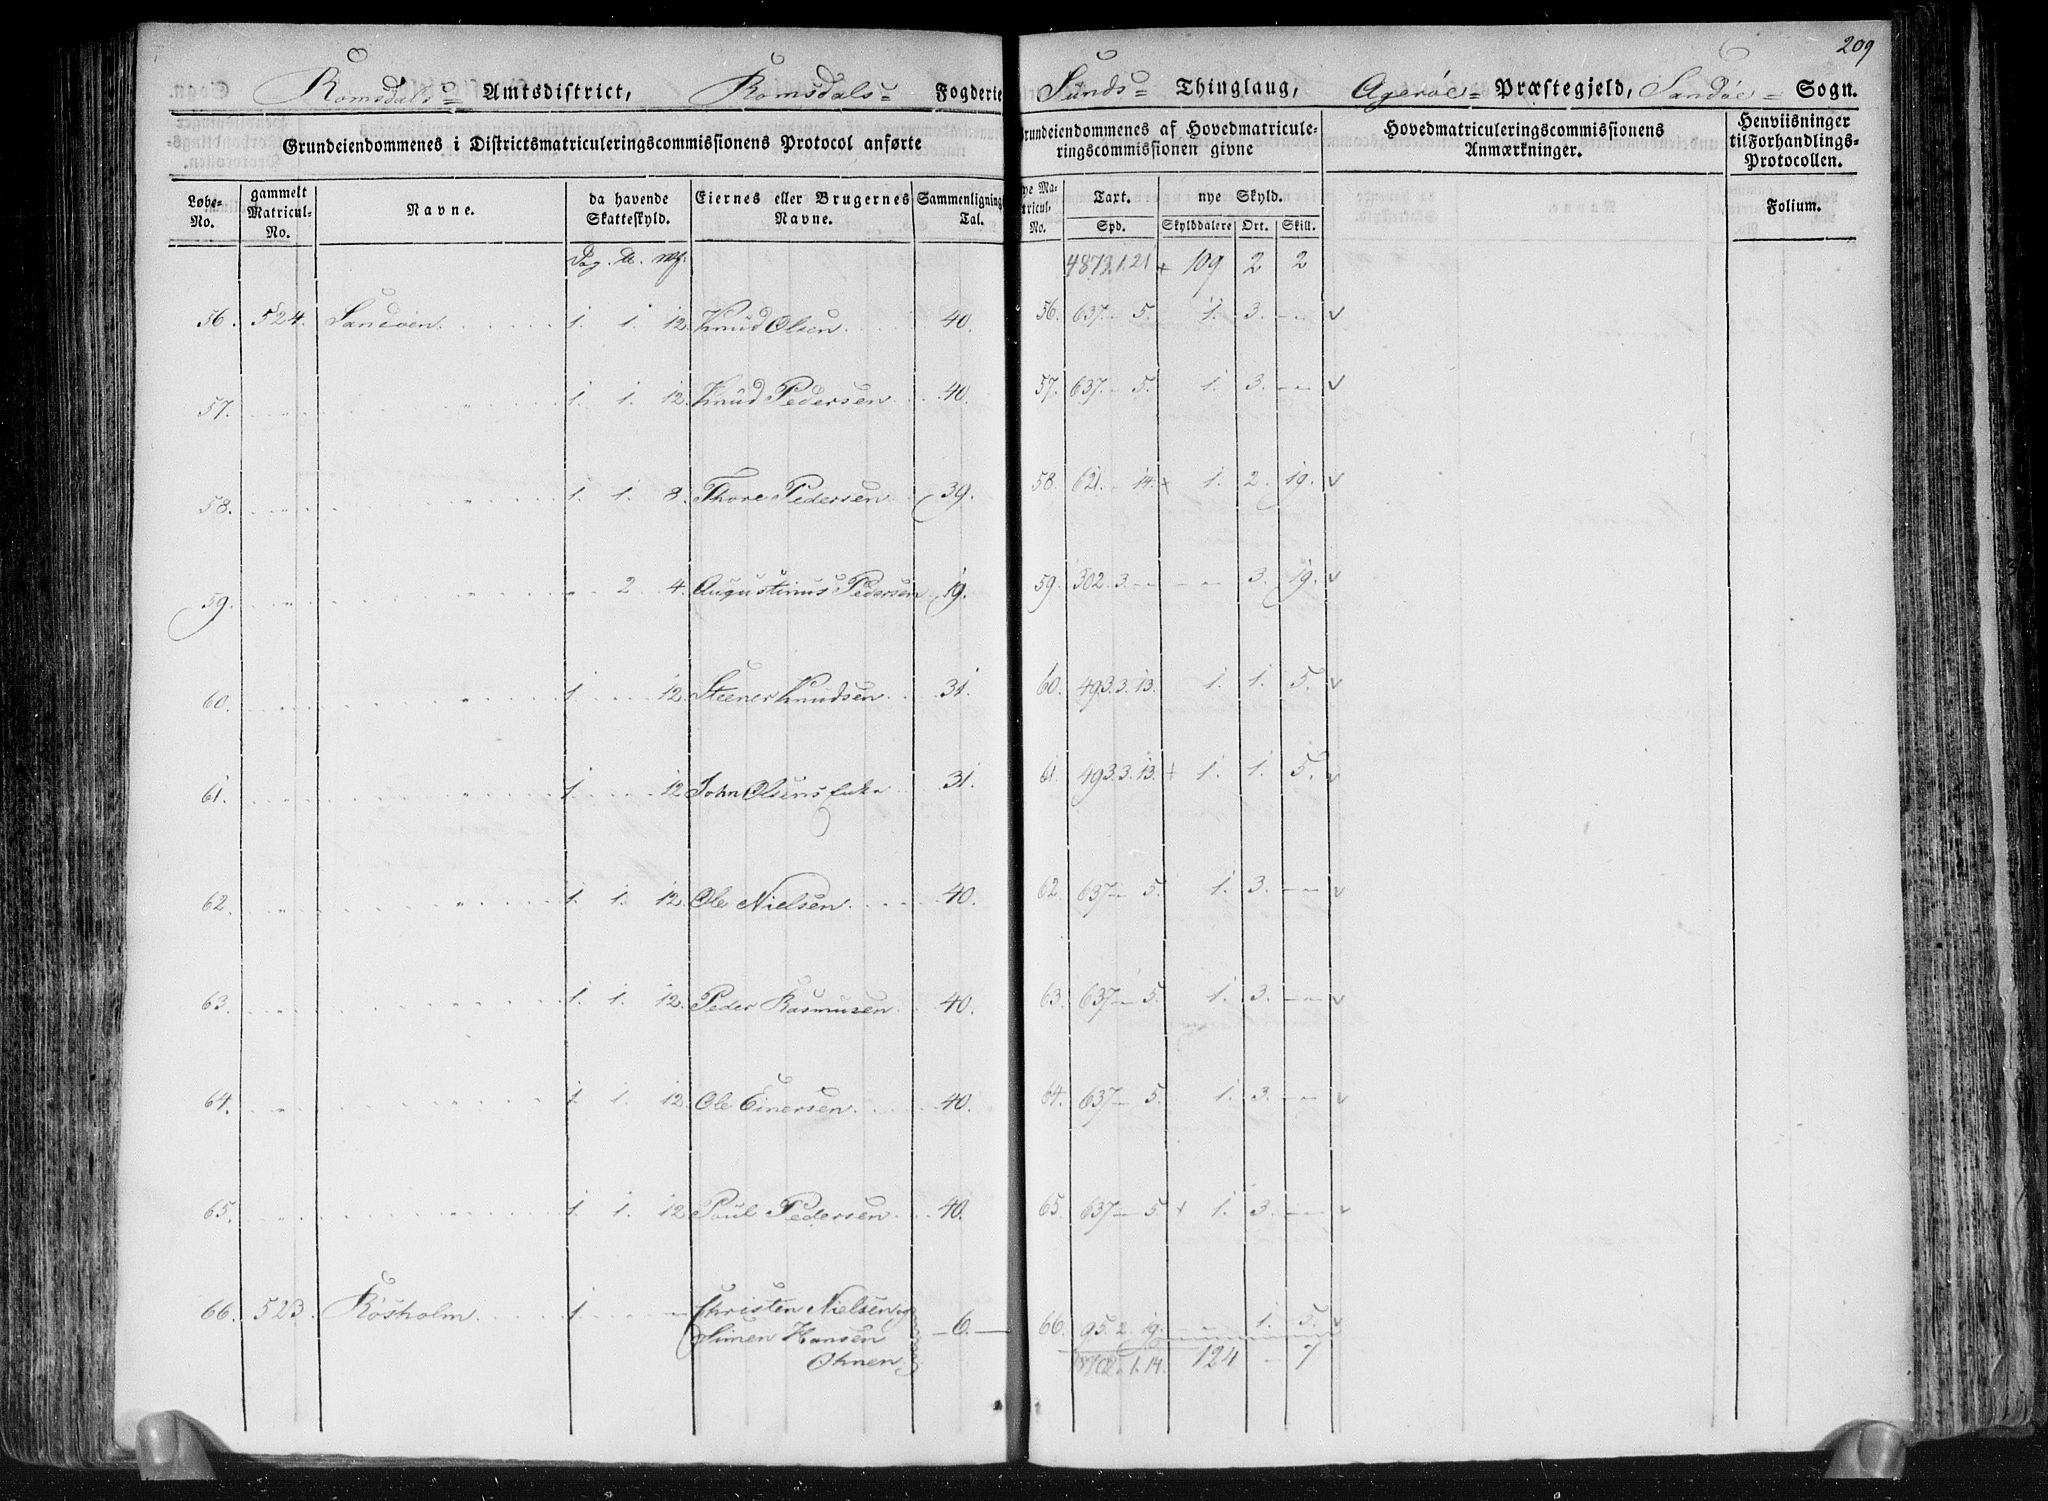 209
Romsdals= Amtsdistrict, Romsdals= Fogderie Sunds= Thinglaug, Agerøe= Præstegjeld, Sandøe= Sogn.
Grundeiendommenes i Districtsmatriculeringscommissionens Protocol anførte
Grundeiendommenes af Hovedmatriculeringscommissionen givne
Hovedmatriculeringscommissionens Anmærkninger.
Henviisninger til Forhandlings-Protocollen.
Løbe-No. gammelt Matricul-No. Navne. da havende Skatteskyld. Eiernes eller Brugernes Navne. Sammenlignings Tal. nye Matricul-No. Taxt. nye Skyld. Folium.
Spd. Skylddalere Ort. Skill.
Pag. 109 2 2
56. 524. Sandøen. 1. 1. 12. Knud Olsen. 40. 56. 637. - 5. 1. 3. - - v
57. 1. 1. 12. Knud Pedersen. 40. 57. 637. - 5. 1. 3. - - v
58. 1. 1. 8. Thore Pedersen. 39. 58. 621. - 14. + 1. 2. 19. v
59. - 2 4. Augustinus Pedersen 19. 59. 302. 3. - - - 3. 19. v
60. 1. 12. Steener Knudsen. 31. 60. 493. 3. 13. 1. 1. 5. v
61. 1. 12. John Olsens Enke 31. 61. 493. 3. 13. + 1. 1. 5. v
62. 1. 1. 12. Ole Nielsen. 40. 62. 637 - 5. 1. 3. - - v
63. 1. 1. 12. Peder Rasmusen. 40. 63. 637 - 5. 1. 3. - - v
64. 1. 1. 12. Ole Einersen. 40. 64. 637 - 5. 1. 3. - - v
65. 1. 1. 12. Poul Pedersen. 40. 65. 637 - 5. + 1. 3. - - v
66. 523. Røsholm. 1. - - Christen Nielsen og
Simen Hansen -6.- 66. 95. 2. 19. - 1. 5.
Ohnen. 1. 14. 124 - 7